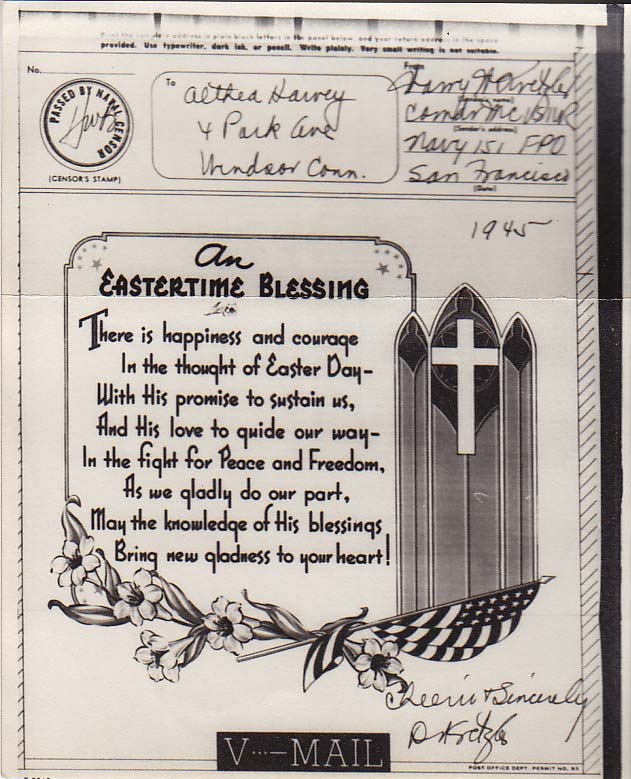 Print the complete address in plain block letters in the panel below, and your return address in the space
provided. Use typewriter, dark ink, or pencil. Write plainly. Very small writing is not suitable.
No.
PASSED BY NAVAL CENSOR
(CENSOR'S STAMP)
To
Althea Harvey
4 Park Ave
Windsor Conn.
From
Harry
(Sender's name)
(Sender's address)
Navy 151 FPO
San Francisco
(Date)
1945
An
EASTERTIME BLESSING
There is happiness and courage
In the thought of Easter Day—
With His promise to sustain us,
And His love to guide our way—
In the fight for Peace and Freedom,
As we gladly do our part,
May the knowledge of His blessings
Bring new gladness to your heart!
Sincerely
V···—MAIL
POST OFFICE DEPT. PERMIT NO.